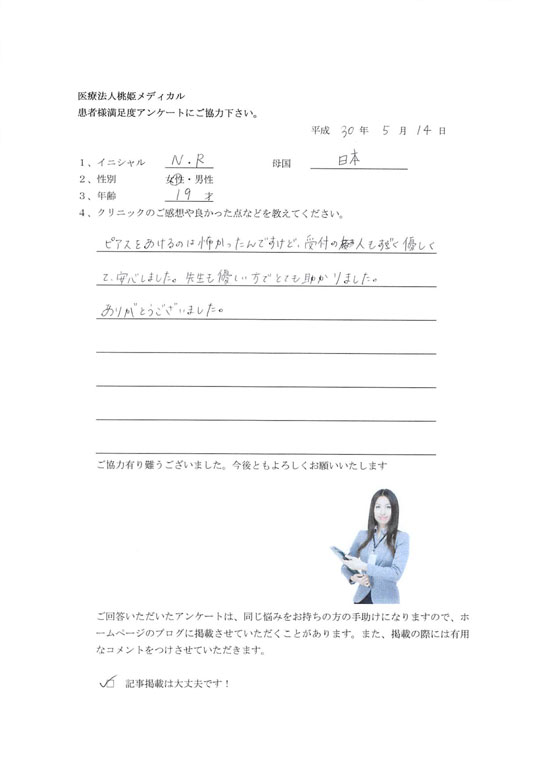 医療法人桃姫メディカル
患者様満足度アンケートにご協力下さい。
平成 30 年 5 月 14 日
1、イニシャル N・R 母国 日本
2、性別 女性・男性
3、年齢 19 才
4、クリニックのご感想や良かった点などを教えてください。
ピアスをあけるのは怖かったんですけど、受付の人もすごく優しく
て、安心しました。先生も優しい方でとても助かりました。
ありがとうございました。
ご協力有り難うございました。今後ともよろしくお願いいたします
ご回答いただいたアンケートは、同じ悩みをお持ちの方の手助けになりますので、ホ
ームページのブログに掲載させていただくことがあります。また、掲載の際には有用
なコメントをつけさせていただきます。
記事掲載は大丈夫です！